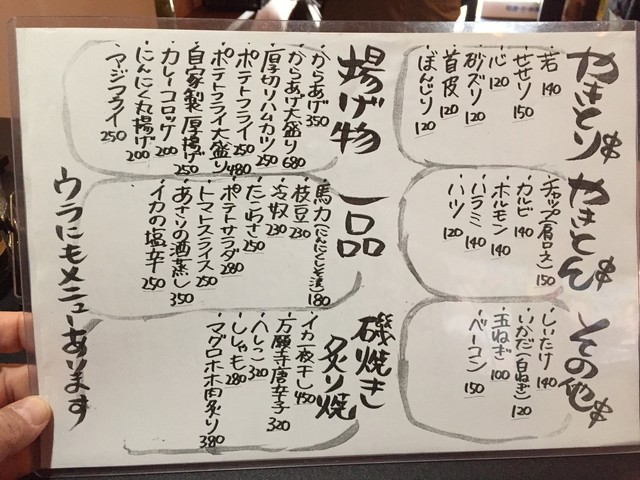 やきとり串
・若 140
・せせり 150
・心 120
・砂ズリ 120
・首皮 120
・ぼんじり 120
やきとん串
・チャップ(肩ロース) 150
・カルビ 140
・ホルモン 140
・ハラミ 140
・ハツ 120
その他串
・しいたけ 140
・いかだ(白ねぎ) 120
・玉ねぎ 100
・ベーコン 150
揚げ物
・からあげ 350
・からあげ大盛り 680
・厚切りハムカツ 250
・ポテトフライ 250
・ポテトフライ大盛り 480
・自家製厚揚げ 250
・カレーコロッケ 200
・にんにく丸揚げ 200
・アジフライ 250
一品
・馬力(にんにくしそ漬) 180
・枝豆 230
・冷奴 230
・たたみいわし 250
・ポテトサラダ 280
・トマトスライス 250
・あさりの酒蒸し 350
・イカの塩辛 250
磯焼き
炙り焼
・イカ一夜干し 450
・万願寺唐辛子 320
・へしこ 320
・ししゃも 280
・マグロホホ肉炙り 380
ウラにもメニューあります